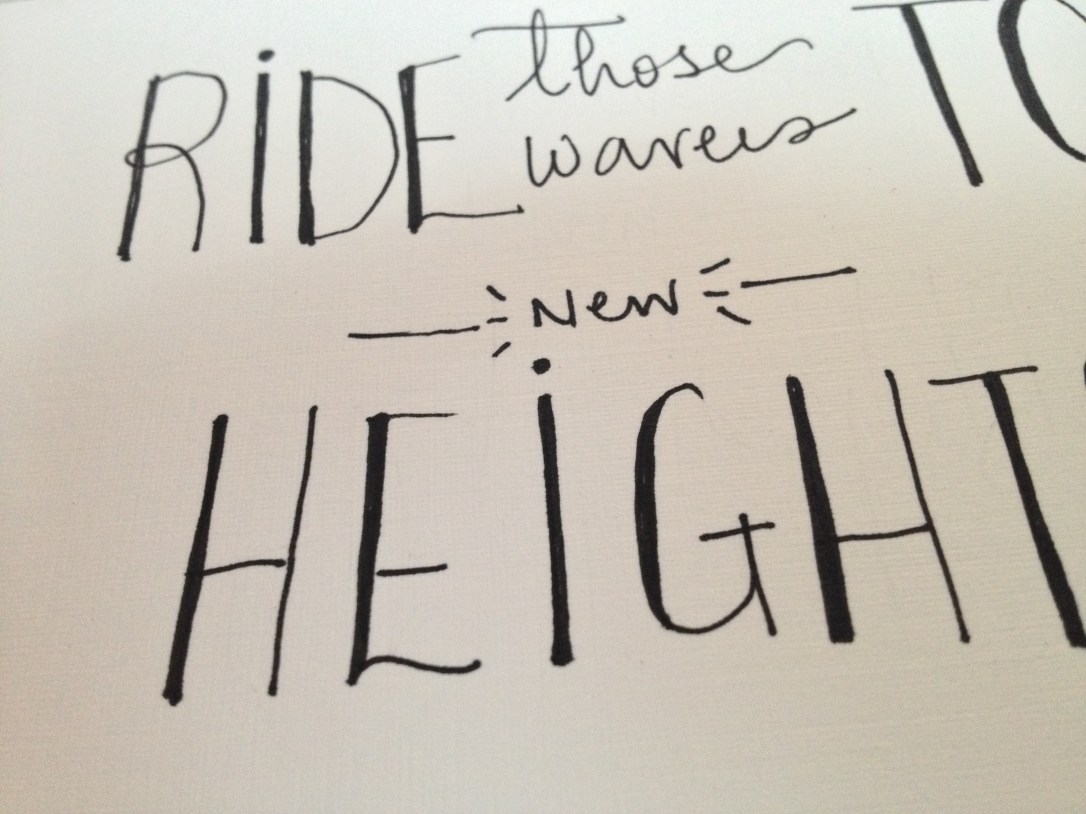 RiDE those TO
waves
New
HEiGHTS